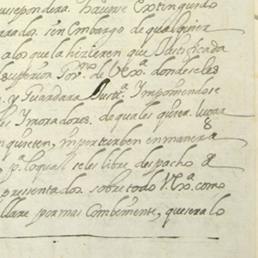 responderâ. hauiose extinguido
rados. sin embargo de qualquier
a los que la hizieren que Notificada
superior Gov.no de Vex.a donde seles
y Guardara Justi.a Ymponiendose
Y moradores. de quales quiera. lugar
inquieten, imperturben en manera
p.a lo qual se les libre despacho
presentados. sobre todo V.Ex.a como
llare por mas Combeniente, que sera lo